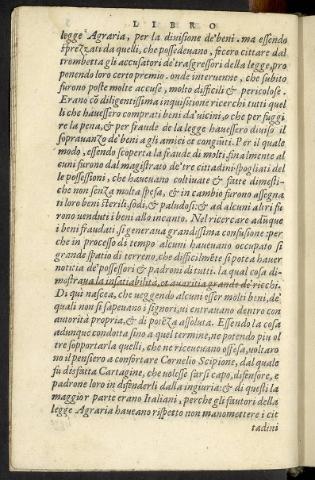 LIBRO
legge Agraria, per la diuisione de'beni. ma essendo
sprezzati da quelli, che possedeuano, fecero cittare dal
trombetta gli accusatori de'trasgressori della legge, pro
ponendo loro certo premio. onde interuenne, che subito
furono poste molte accuse, molto difficili & pericolose.
Erano cõ diligentissima inquisitione ricerchi tutti quel
li che hauessero comprati beni da'uicini, o che per fuggi
re la pena, & per fraude de la legge hauessero diuiso il
soprauanzo de'beni a gli amici et congiuti. Per il quale
modo, essendo scoperta la fraude di molti, finalmente al
cuni furono dal magistrato de'tre cittadini spogliati del
le possessioni, che haueuano coltiuate & fatte dimesti-
che non senza molta spesa, & in cambio furono assegna
ti loro beni sterili, sodi, & paludosi: & ad alcuni altri fu
rono uenduti i beni allo incanto. Nel ricercare adũque
i beni fraudati si generaua grandissima confusione: per
che in processo di tempo alcuni haueuano occupato si
grande spatio di terreno, che difficilmẽte si potea hauer
notitia de'possessori & padroni di tutti. la qual cosa di-
mostraua la insatiabilità, et auaritia grande de'ricchi.
Di qui nascea, che ueggendo alcuni esser molti beni, de'
quali non si sapeuano i signori, ui entrauano dentro con
autorità propria, & di potẽza assoluta. Essendo la cosa
adunque condotta sino a quel termine, ne potendo piu ol
tre sopportarla quelli, che ne riceueuano offesa, uoltaro
no il pensiero a confortare Cornelio Scipione, dal quale
fu disfatta Cartagine, che uolesse farsi capo, difensore, e
padrone loro in difenderli dalla ingiuria: & di questi la
maggior parte erano Italiani, perche gli fautori della
legge Agraria haueano rispetto non manomettere i cit
tadini